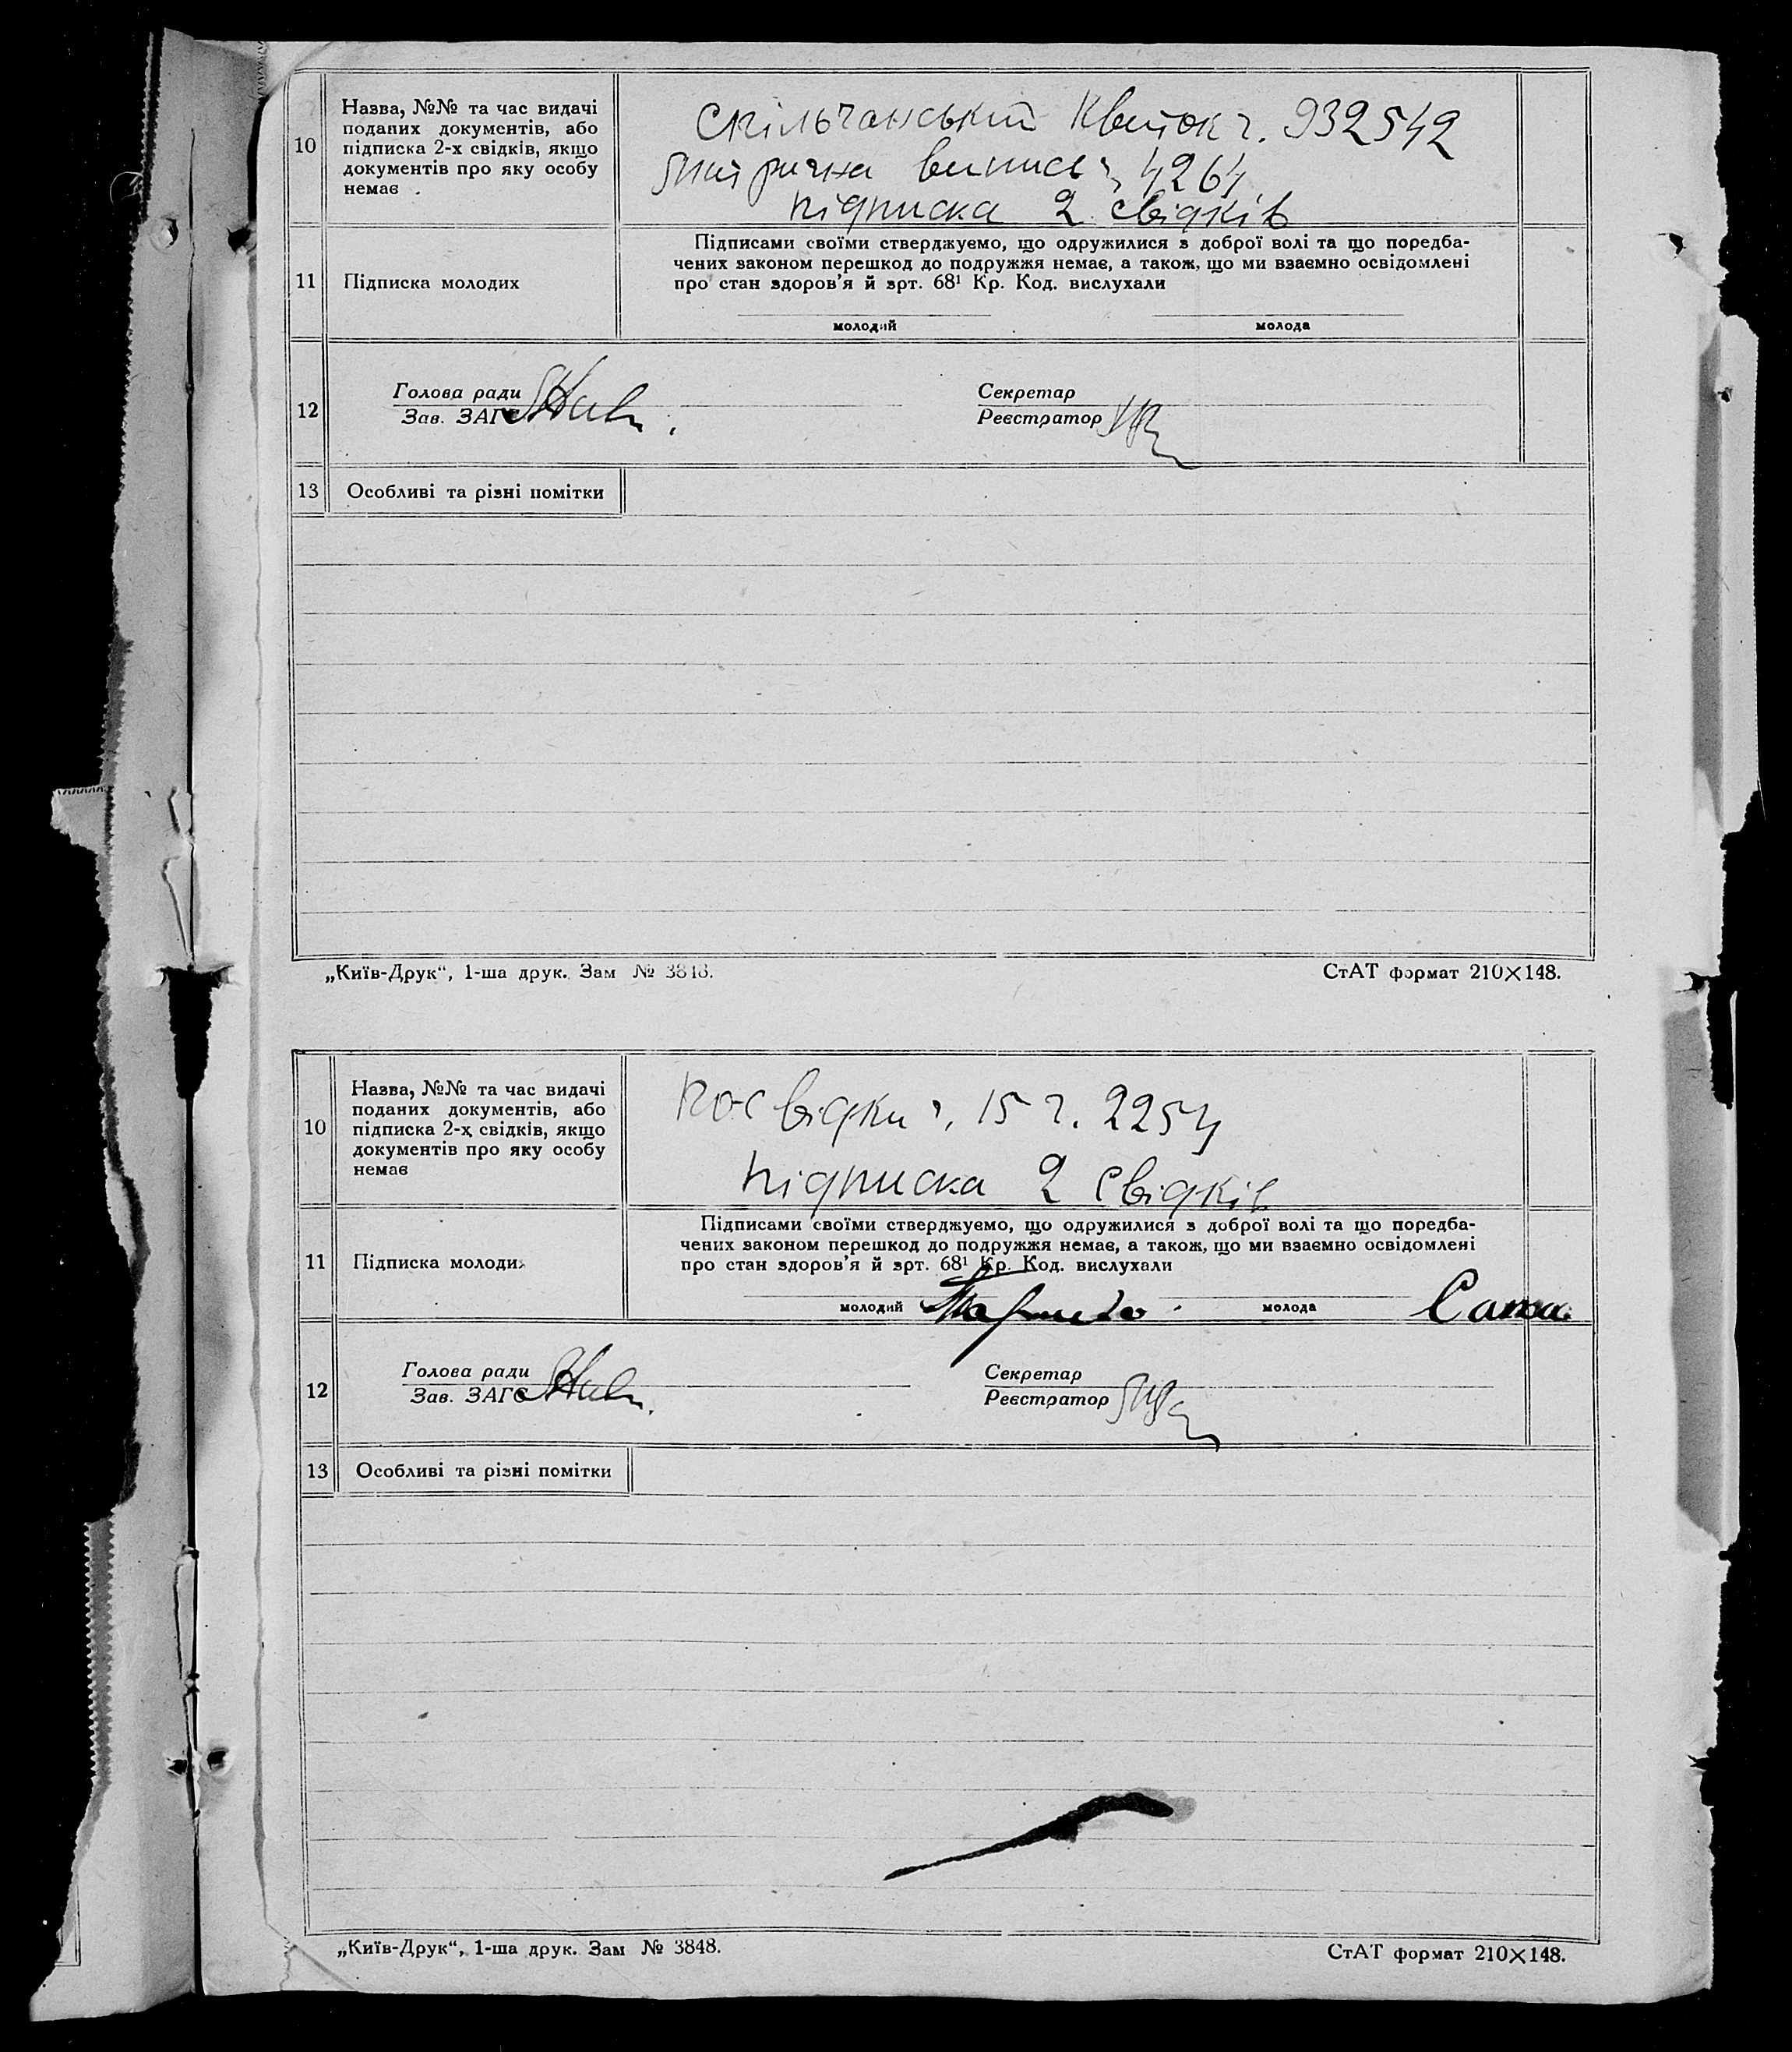 10
Назва, №№ та час видачі
поданих документів, або
підписка 2-х свідків, якщо
документів про яку особу
немає
Спільчанський Квиток ч. 932542
Метрична випись ч. 4264
підписка 2 свідків
11
Підписка молодих
Підписами своїми стверджуємо, що одружилися з доброї волі та що поредба-
чених законом перешкод до подружжя немає, а також, що ми взаємно освідомлені
про стан здоров'я й зрт. 68¹ Кр. Код. вислухали
молодий молода
12
Голова ради
Зав. ЗАГС
Секретар
Реєстратор
13
Особливі та різні помітки
„Київ-Друк“, 1-ша друк. Зам № 3848.
СтАТ формат 210×148.
10
Назва, №№ та час видачі
поданих документів, або
підписка 2-х свідків, якщо
документів про яку особу
немає
Посвідки ч. 15 ч. 2254
підписка 2 свідків
11
Підписка молодих
Підписами своїми стверджуємо, що одружилися з доброї волі та що поредба-
чених законом перешкод до подружжя немає, а також, що ми взаємно освідомлені
про стан здоров'я й зрт. 68¹ Кр. Код. вислухали
молодий молода
12
Голова ради
Зав. ЗАГС
Секретар
Реєстратор
13
Особливі та різні помітки
„Київ-Друк“, 1-ша друк. Зам № 3848.
СтАТ формат 210×148.